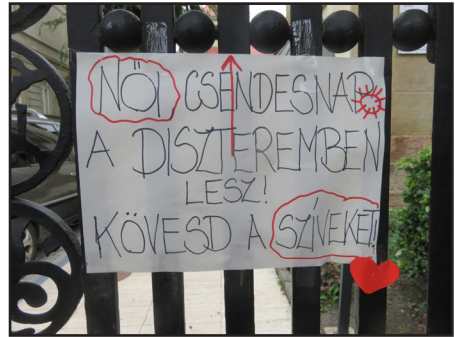 NŐI CSENDESNAP
A DISZTEREMBEN
LESZ!
KÖVESD A SZÍVEKET!